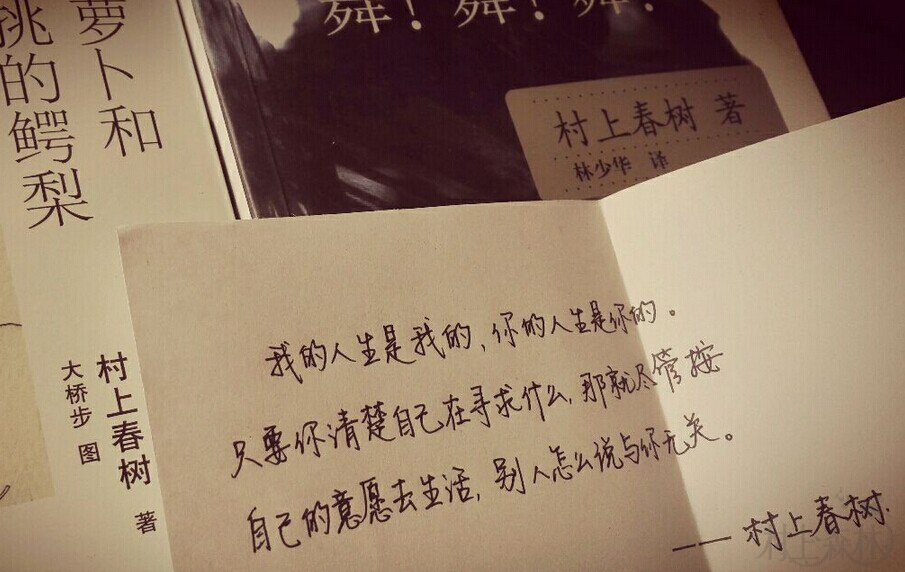 萝卜和
挑的鳄梨
村上春树 著
大桥步 图
舞！舞！舞！
村上春树 著
林少华 译
我的人生是我的，你的人生是你的。
只要你清楚自己在寻求什么，那就尽管按
自己的意愿去生活，别人怎么说与你无关。
——村上春树.